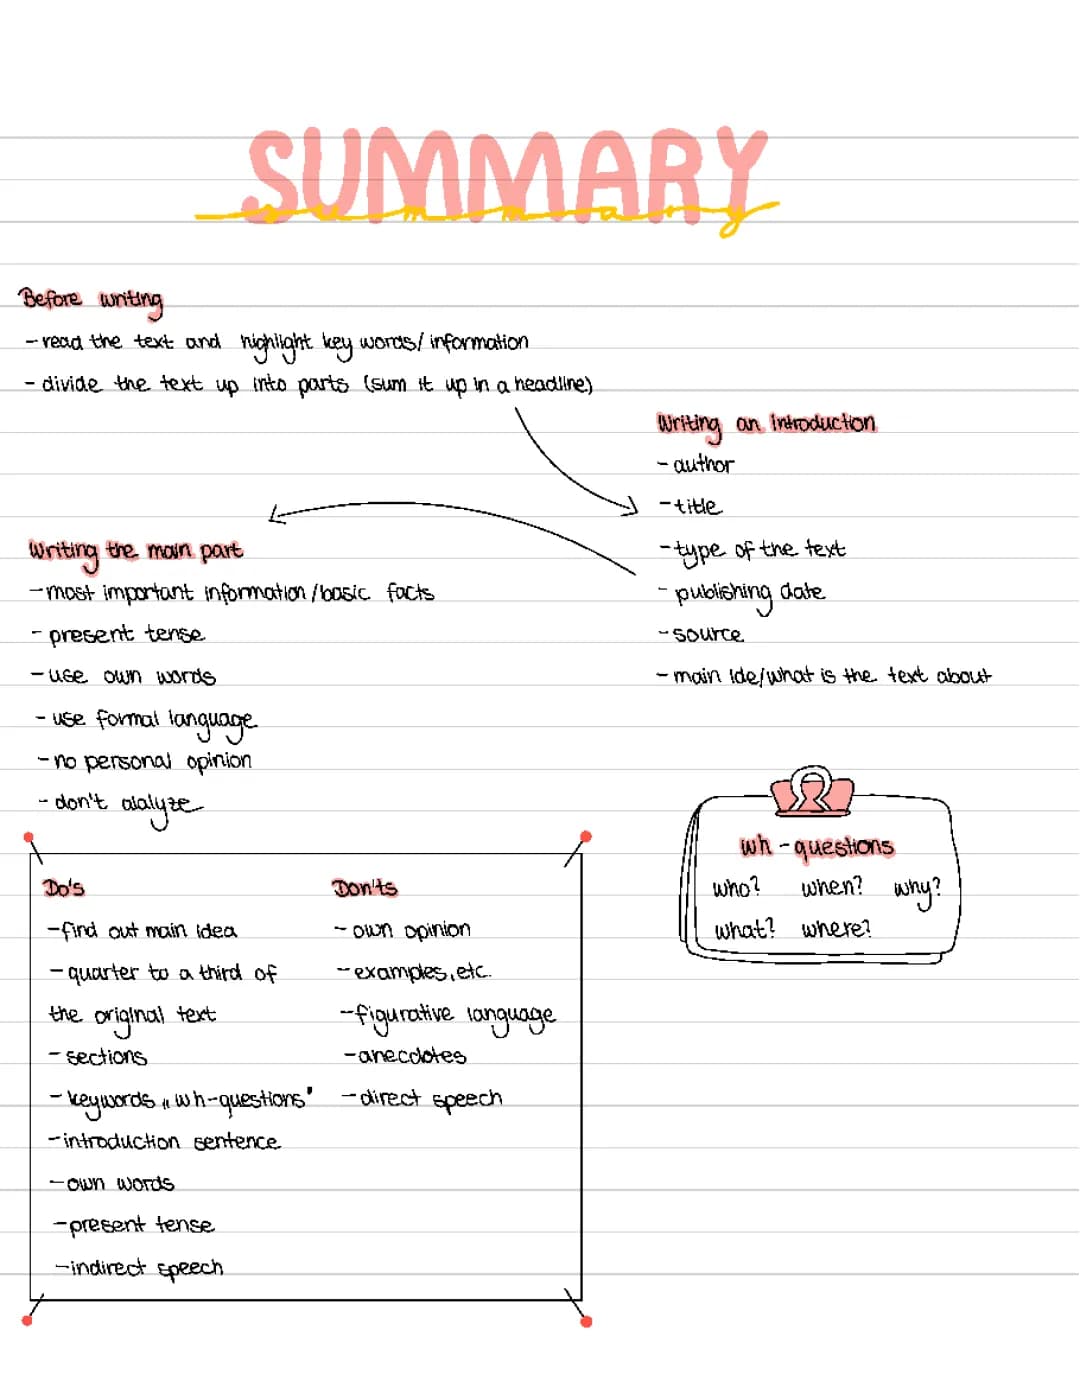 SUMMARY
summary
Before writing
- read the text and highlight key words/ information
- divide the text up into parts (sum it up in a headline)
Writing an introduction
- author
- title
- type of the text
- publishing date
- source
- main ide/what is the text about
Writing the main part
- most important information /basic facts
- present tense
- use own words
- use formal language
- no personal opinion
- don't alalyze
wh - questions
who? when? why?
what? where?
Do's
- find out main idea
- quarter to a third of
the original text
- sections
- keywords „wh-questions"
- introduction sentence
- own words
- present tense
- indirect speech
Don'ts
- own opinion
- examples, etc.
- figurative language
- anecdotes
- direct speech